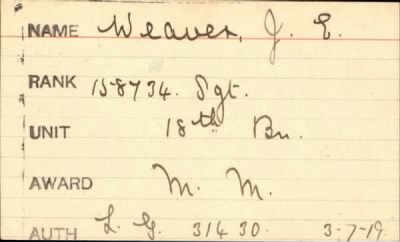 NAME Weaver, J. E.
RANK 158734. Sgt.
UNIT 18th Bn.
AWARD M. M.
AUTH L. G. 31430. 3-7-19